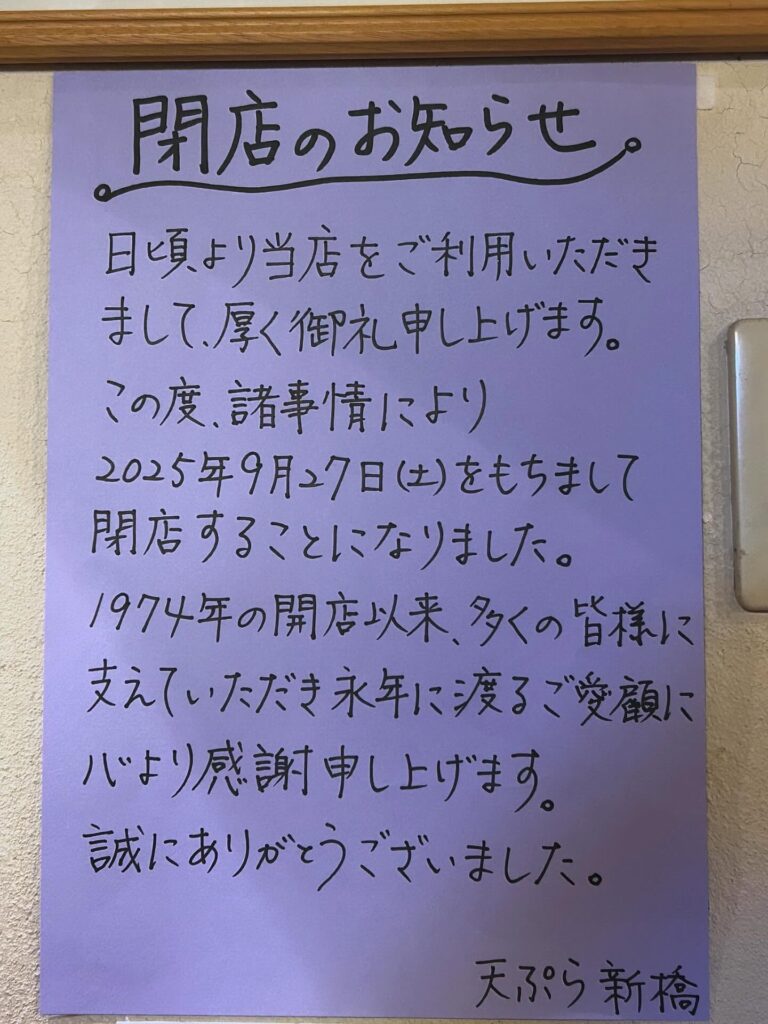 閉店のお知らせ。
日頃より当店をご利用いただき
まして、厚く御礼申し上げます。
この度、諸事情により
2025年9月27日(土)をもちまして
閉店することになりました。
1974年の開店以来、多くの皆様に
支えていただき永年に渡るご愛顧に
心より感謝申し上げます。
誠にありがとうございました。
天ぷら新橋